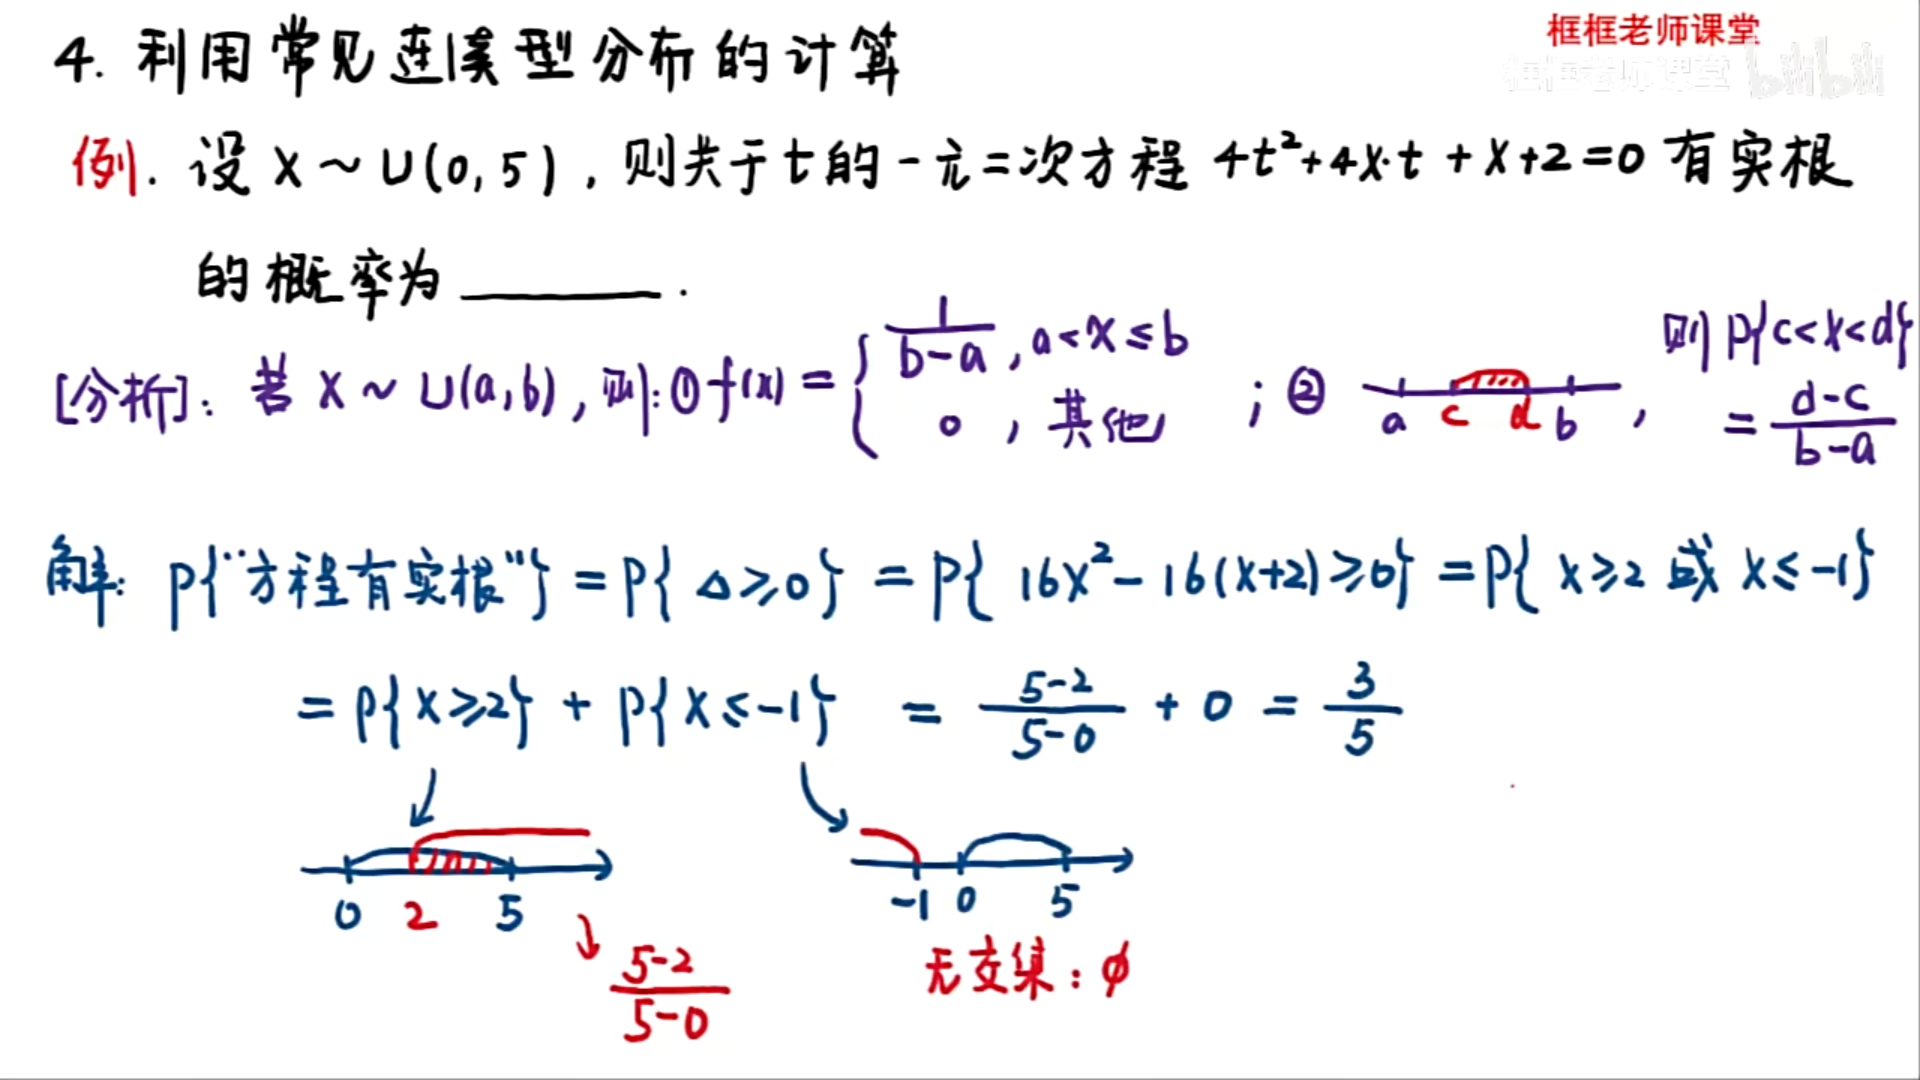 框框老师课堂
框框老师课堂 bilibili
4. 利用常见连续型分布的计算
例. 设 X ~ U(0,5), 则关于t的一元二次方程 4t²+4X·t+X+2=0 有实根
的概率为 ______.
[分析]: 若 X ~ U(a,b), 则: ① f(x) = { 1/(b-a), a<x≤b ; 0, 其他 ; ② a c d b , 则 P{c<X<d} = (d-c)/(b-a)
解: P{"方程有实根"} = P{Δ≥0} = P{16X²-16(X+2)≥0} = P{X≥2 或 X≤-1}
= P{X≥2} + P{X≤-1} = (5-2)/(5-0) + 0 = 3/5
0 2 5
-1 0 5
(5-2)/(5-0)
无交集: ϕ